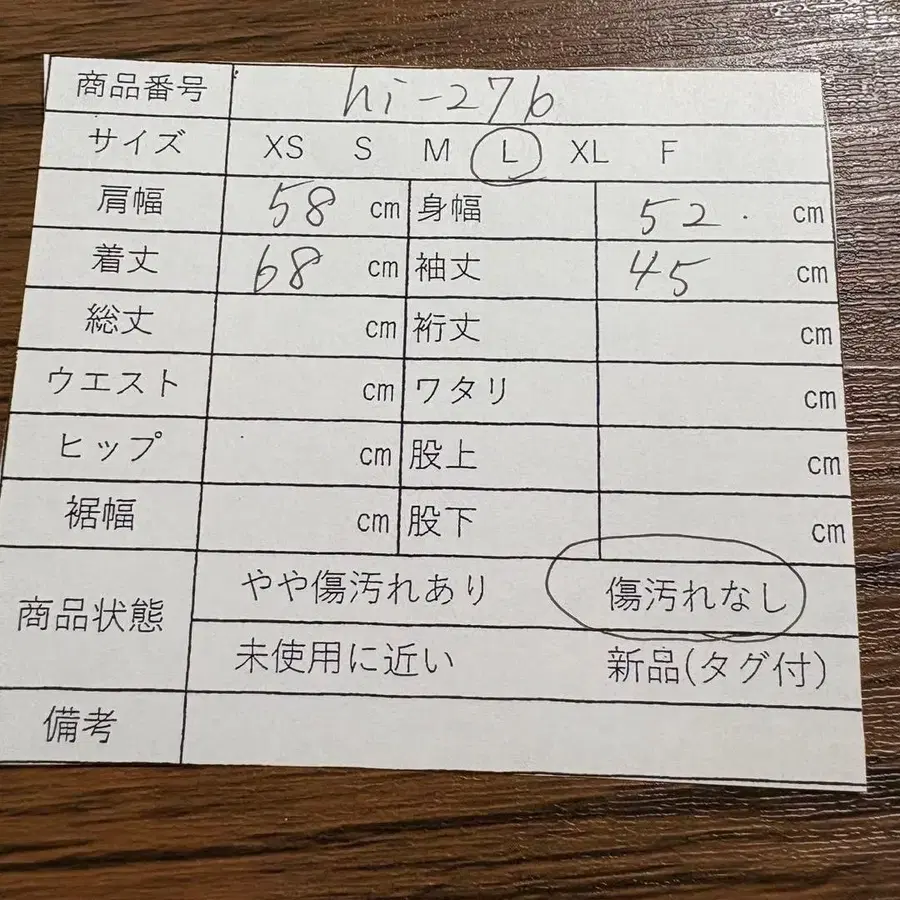 商品番号 hi-276
サイズ XS S M L XL F
肩幅 58 cm 身幅 52. cm
着丈 68 cm 袖丈 45 cm
総丈 cm 裄丈 cm
ウエスト cm ワタリ cm
ヒップ cm 股上 cm
裾幅 cm 股下 cm
商品状態 やや傷汚れあり 傷汚れなし
未使用に近い 新品(タグ付)
備考